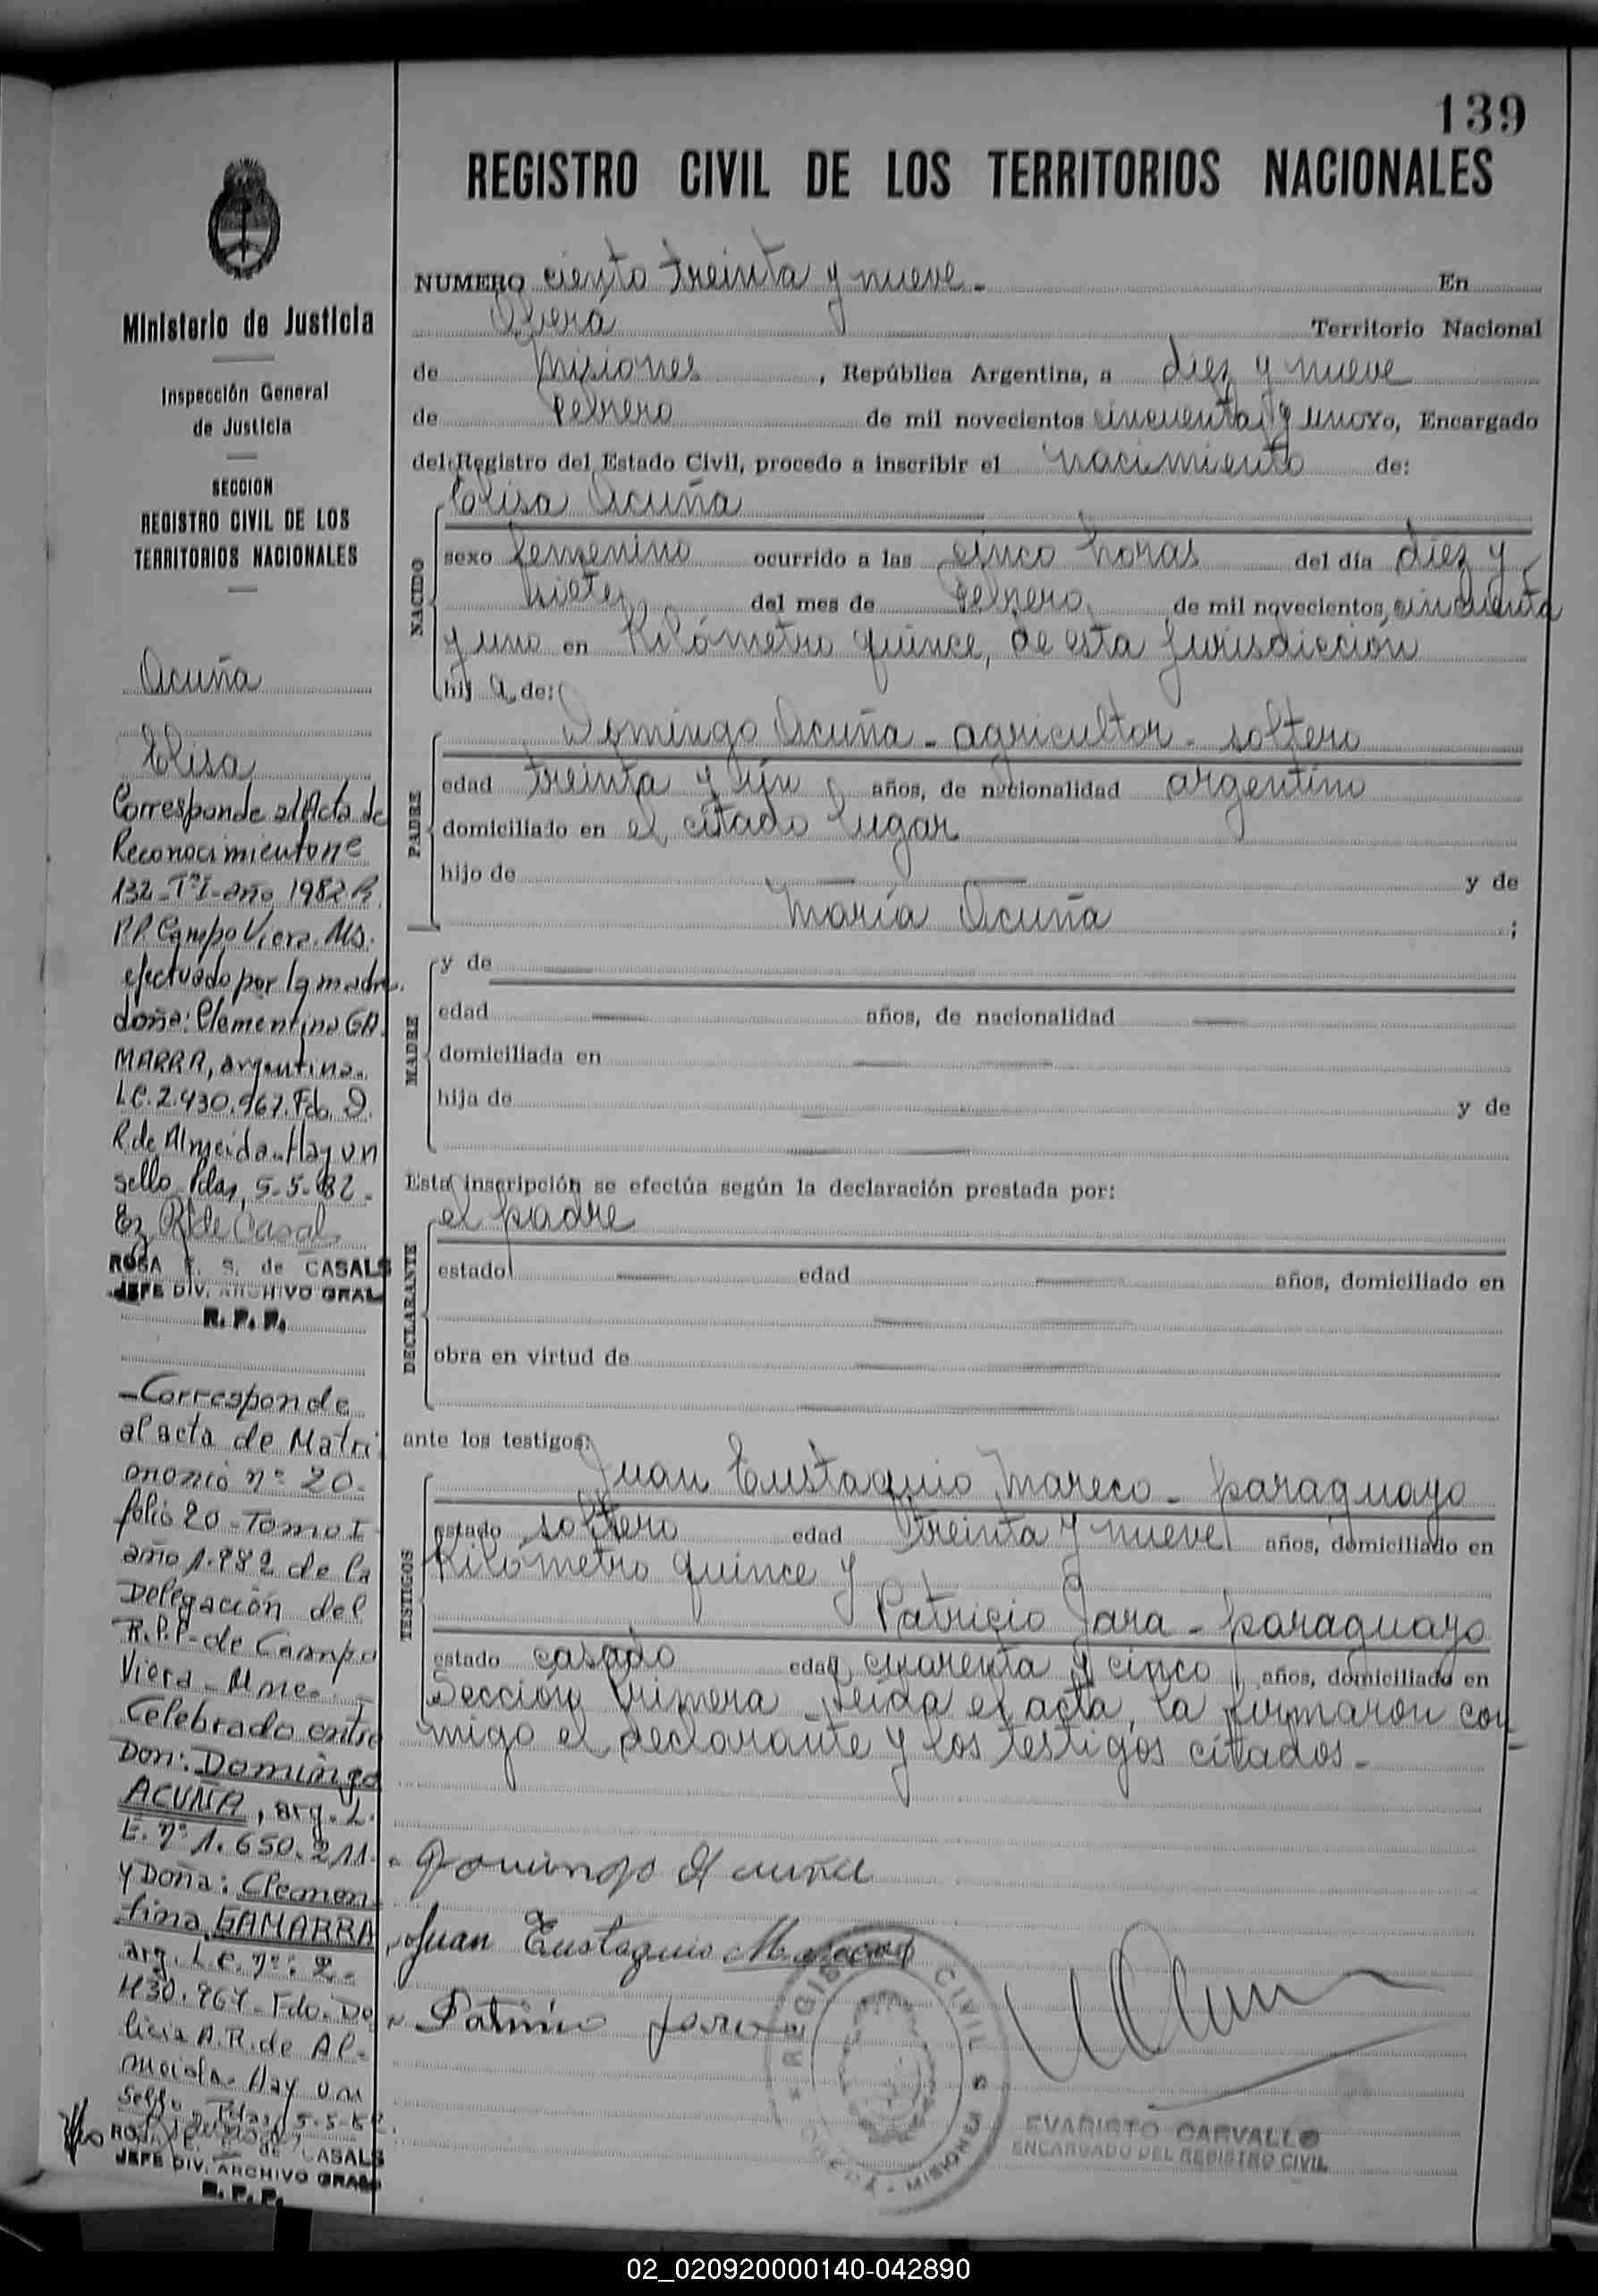 139
REGISTRO CIVIL DE LOS TERRITORIOS NACIONALES
NUMERO ciento treinta y nueve.- En
Oberá Territorio Nacional
de Misiones, República Argentina, a diez y nueve
de Febrero de mil novecientos cincuenta y uno Yo, Encargado
del Registro del Estado Civil, procedo a inscribir el nacimiento de:
NACIDO
Elisa Acuña
sexo femenino ocurrido a las cinco horas del día diez y
siete del mes de Febrero de mil novecientos cincuenta
y uno en Kilómetro quince, de esta jurisdicción
hij a de:
PADRE
Domingo Acuña - agricultor - soltero
edad treinta y un años, de nacionalidad argentino
domiciliado en el citado lugar
hijo de y de
María Acuña ;
MADRE
y de
edad años, de nacionalidad
domiciliada en
hija de y de
Esta inscripción se efectúa según la declaración prestada por:
DECLARANTE
el padre
estado edad años, domiciliado en
obra en virtud de
ante los testigos:
TESTIGOS
Juan Eustaquio Mareco - paraguayo
estado soltero edad treinta y nueve años, domiciliado en
Kilómetro quince y
Patricio Jara - paraguayo
estado casado edad cuarenta y cinco años, domiciliado en
Sección Primera - Leída el acta, la firmaron con-
migo el declarante y los testigos citados.-
Domingo Acuña
Juan Eustaquio Mareco
Patricio Jara
REGISTRO CIVIL
OBERA - MISIONES
EVARISTO CARVALLO
ENCARGADO DEL REGISTRO CIVIL
Ministerio de Justicia
Inspección General
de Justicia
SECCION
REGISTRO CIVIL DE LOS
TERRITORIOS NACIONALES
Acuña
Elisa
Corresponde al Acta de
Reconocimiento nº
132-TºI-año 1982 R.
P.P. Campo Viera. Ms.
efectuado por la madre.
doña: Clementina GA
MARRA, argentina.
LC. 2.430.967. Fdo. D.
R. de Almeida. Hay un
sello. Pdas, 5-5-82.-
R. de Casals
ROSA E. S. de CASALS
JEFE DIV. ARCHIVO GRAL
R. P. P.
-Corresponde
al acta de Matri
onomio nº 20-
folio 20-Tomo I
año 1.982 de la
Delegación del
R.P.P-de Campo
Viera-Mnes.-
Celebrado entre
Don: Domingo
ACUÑA, arg. L.
E. nº 1.650.211.-
y Doña: Clemen-
tina GAMARRA
arg. L.C. nº: 2.-
430.967-Fdo. De
licia A.R. de Al-
meida. Hay un
sello. Pdas, 5-5-82.
ROSA E. S. de CASALS
JEFE DIV. ARCHIVO GRAL
R. P. P.
02_020920000140-042890